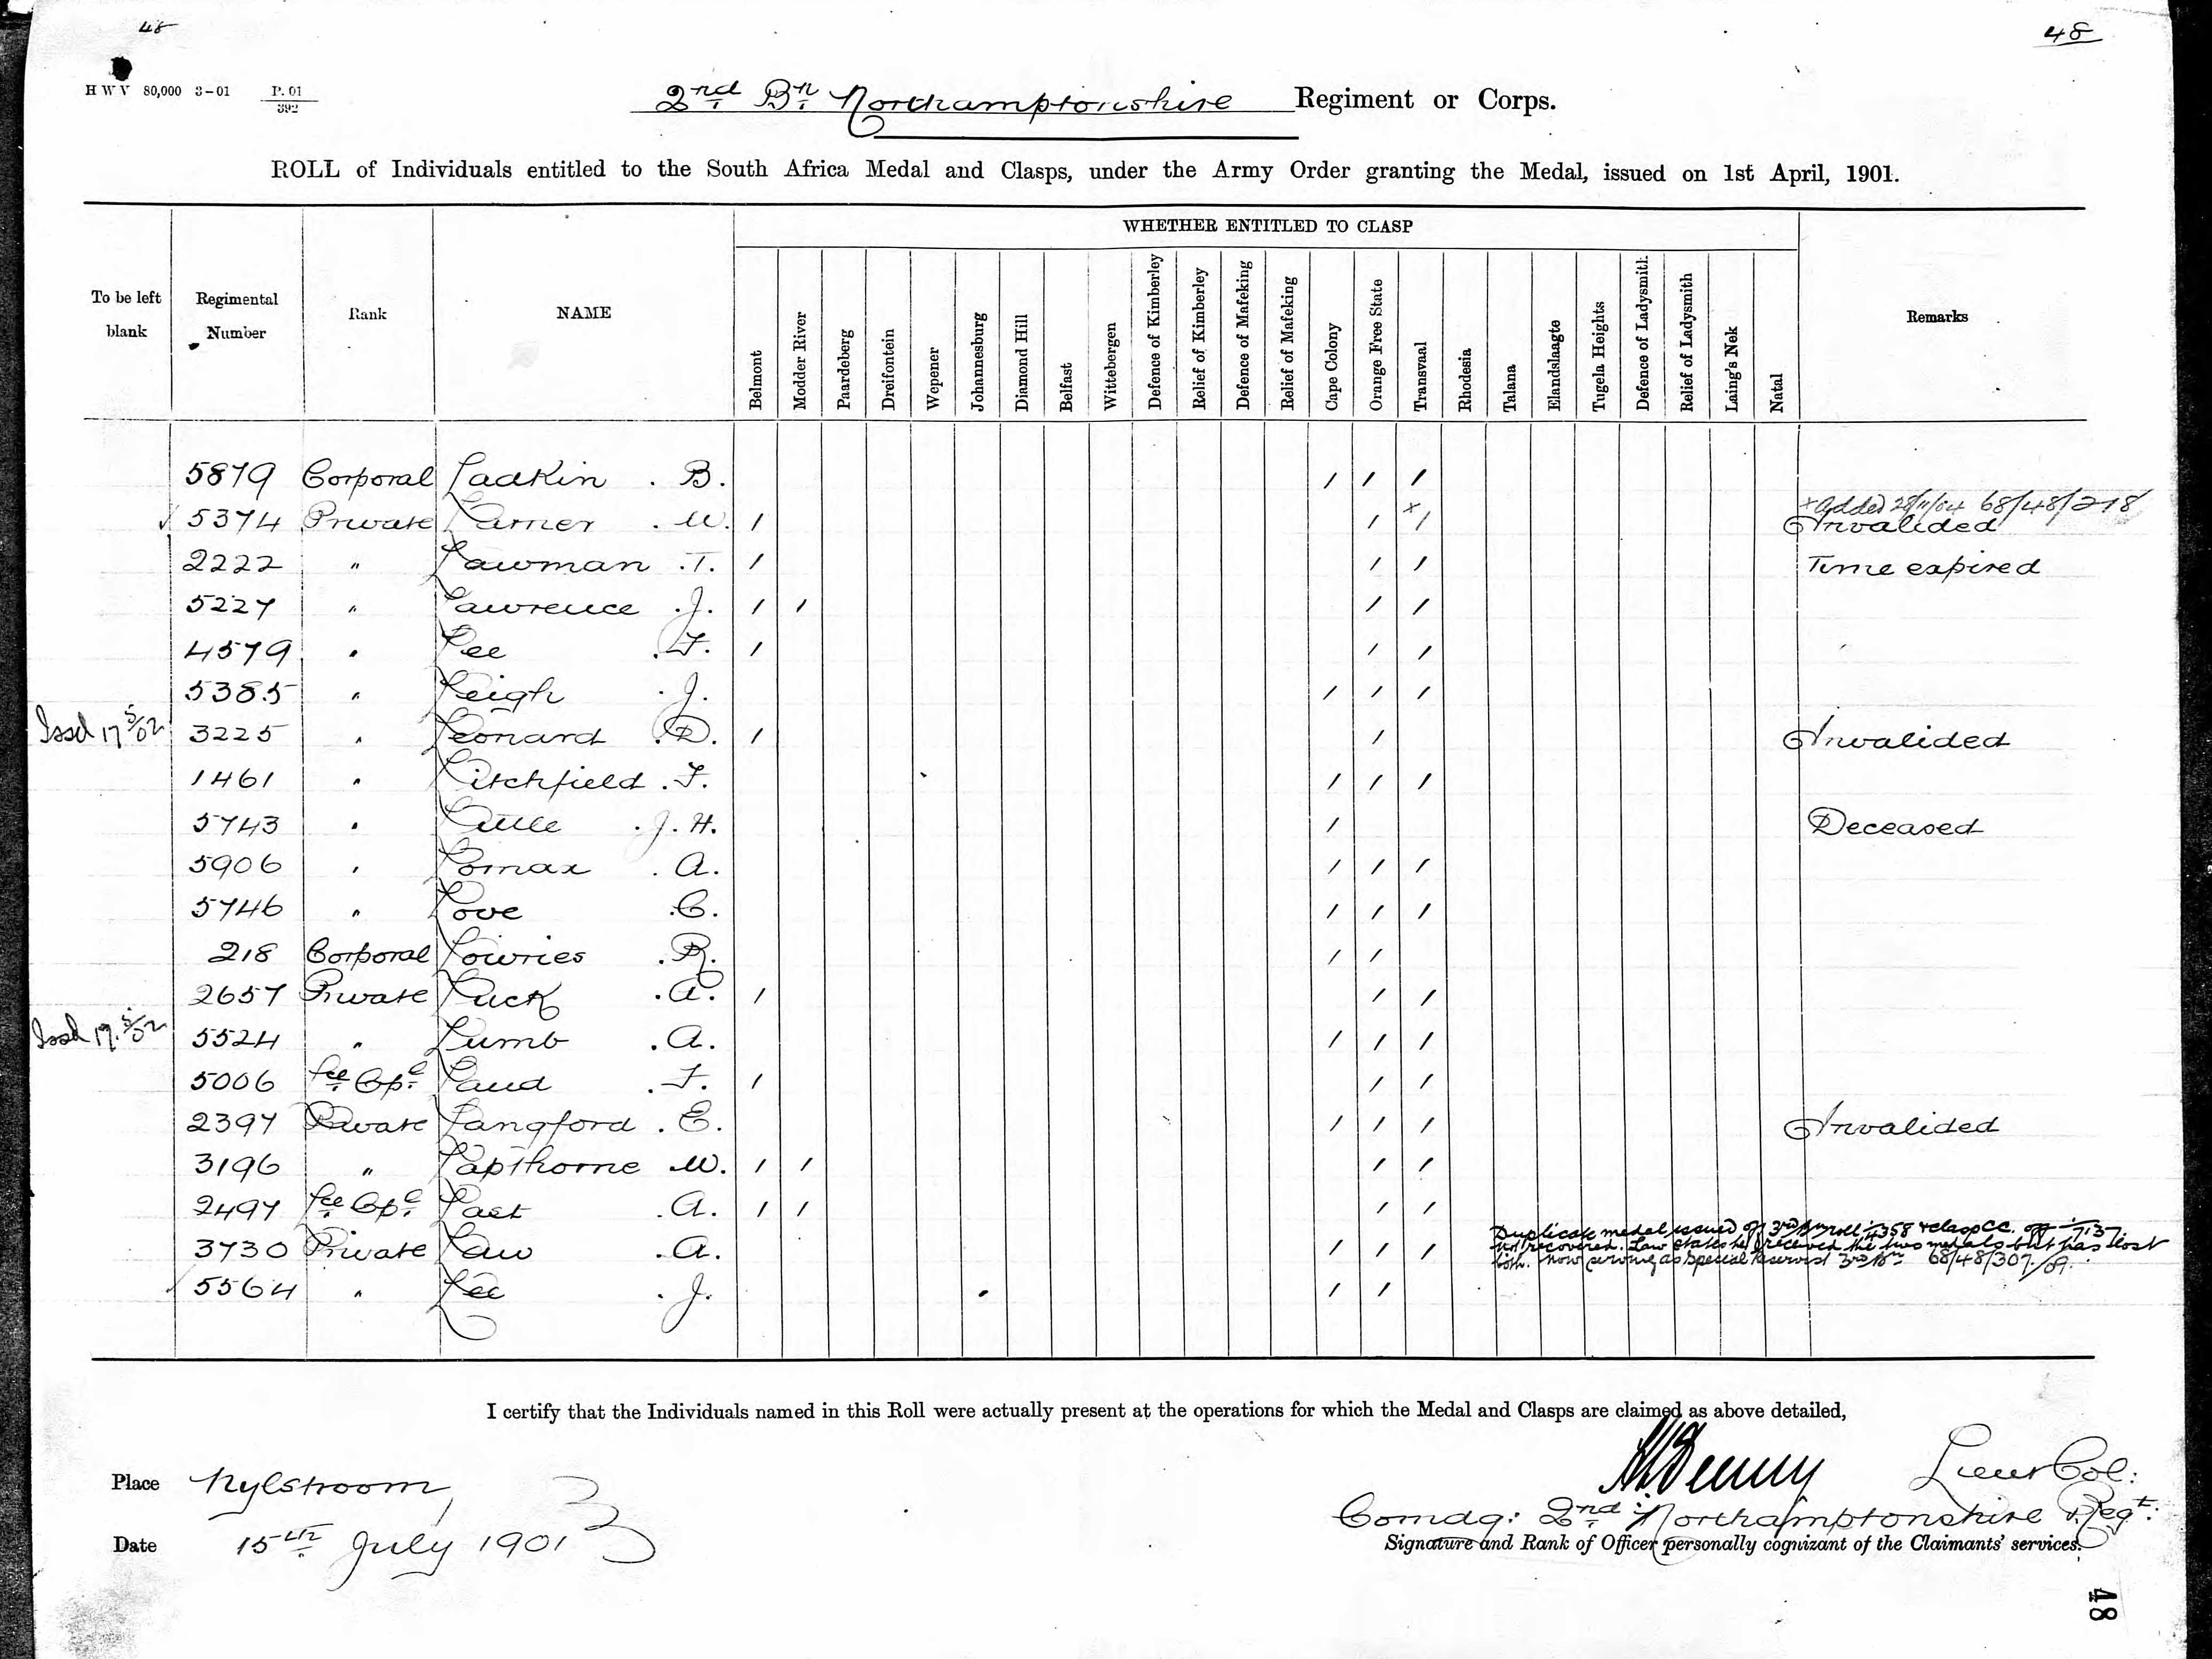 48
48
H W V 80,000 3-01 P. 01
392
2nd Bn Northamptonshire Regiment or Corps.
ROLL of Individuals entitled to the South Africa Medal and Clasps, under the Army Order granting the Medal, issued on 1st April, 1901.
WHETHER ENTITLED TO CLASP
To be left blank Regimental Number Rank NAME Belmont Modder River Paardeberg Dreifontein Wepener Johannesburg Diamond Hill Belfast Wittebergen Defence of Kimberley Relief of Kimberley Defence of Mafeking Relief of Mafeking Cape Colony Orange Free State Transvaal Rhodesia Talana Elandslaagte Tugela Heights Defence of Ladysmith Relief of Ladysmith Laing's Nek Natal Remarks
5879 Corporal Ladkin . B. / / /
x Added 28/11/04 68/48/218
✓ 5374 Private Larner . W. / / x/ Invalided
2222 " Lawman . T. / / / Time expired
5227 " Lawrence . J. / / / /
4579 " Lee . F. / / /
5385 " Leigh . J. / / /
Issd 17 5/02 3225 " Leonard . D. / / Invalided
1461 " Litchfield . F. / / /
5743 " Little . J. H. / Deceased
5906 " Lomax . A. / / /
5746 " Love . C. / / /
218 Corporal Lowries . R. / /
2657 Private Luck . A. / / /
Issd 19. 5/02 5524 " Lumb . A. / / /
5006 Lce Cpl Laud . F. / / /
2397 Private Langford . E. / / / Invalided
3196 " Lapthorne W. / / / /
2497 Lce Cpl Last . A. / / / /
Duplicate medal issued off 3rd Bn roll 4358 & clasp CC. off 7137
3730 Private Law . A. / / / not recovered. Law states he received the two medals but has lost
both. Now serving as Special Reservist 3rd Bn 68/48/307/09.
✓ 5564 " Lee . J. / /
I certify that the Individuals named in this Roll were actually present at the operations for which the Medal and Clasps are claimed as above detailed,
Place Nylstroom,
Lieut Col:
Comdg: 2nd Northamptonshire Regt:
Date 15th July 1901
Signature and Rank of Officer personally cognizant of the Claimants' services.
48